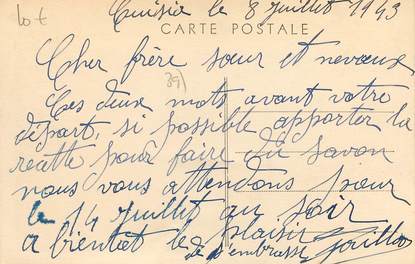 Lot
Cuisia le 8 Juillet 1943
CARTE POSTALE
Cher frère sœur et neveux
39)
Ces deux mots avant votre
départ, si possible apporter la
recette pour faire du savon
nous vous attendons pour
le 14 Juillet au soir
a bientot le plaisir
de embrasse